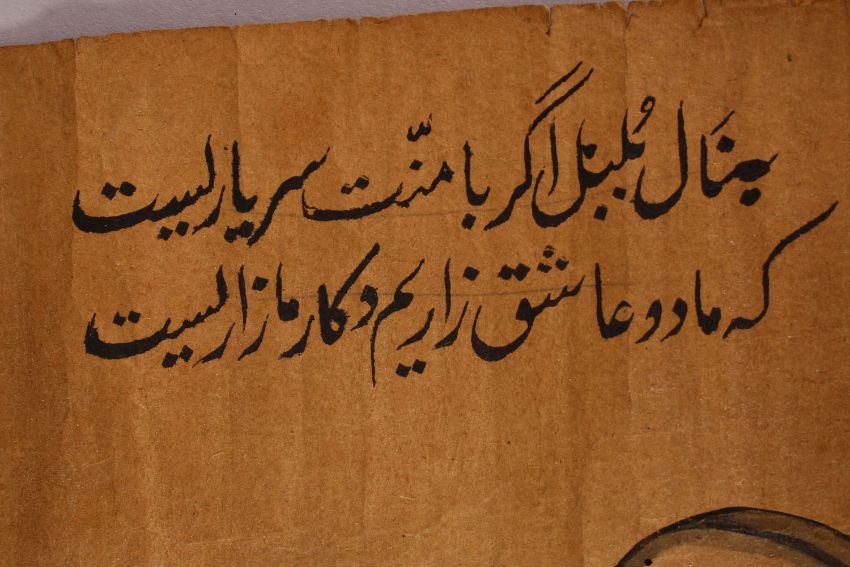 بنال بُلبل اگر با منّت سر یاریست
که ما دو عاشق زاریم و کار ما زاریست